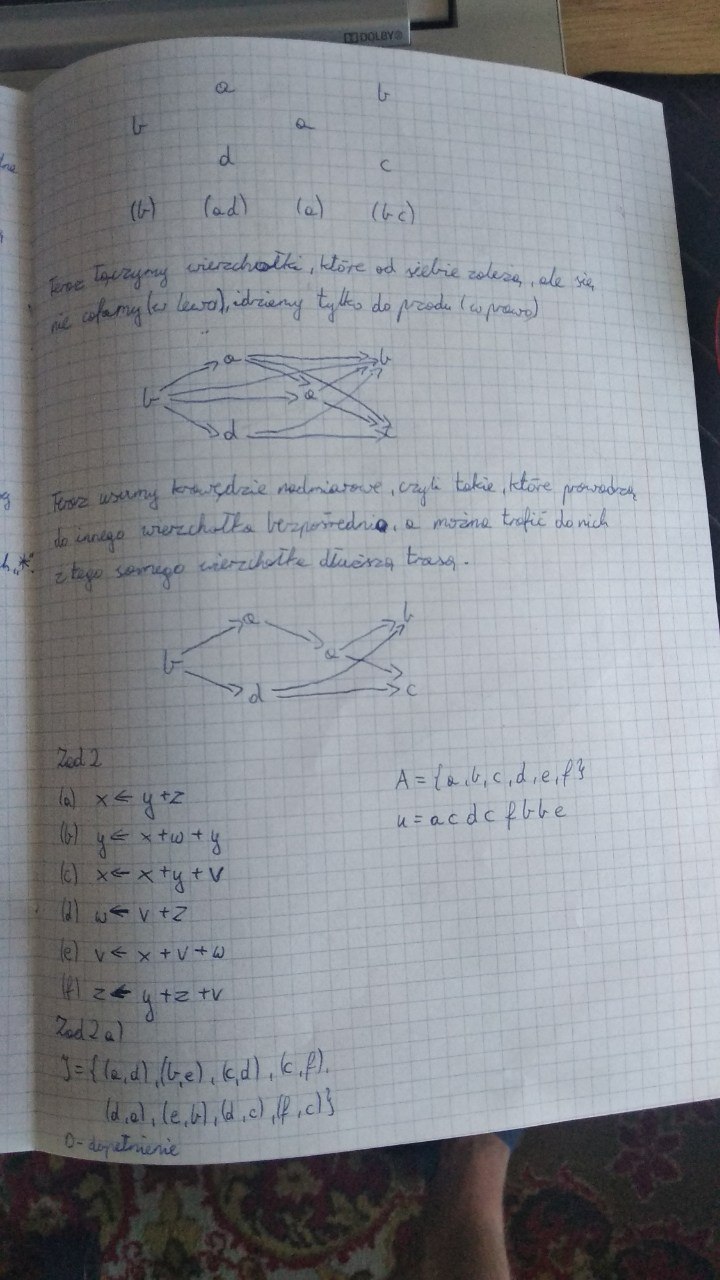 DOLBY
a b
b a
d c
(b) (ad) (a) (bc)
Teraz łączymy wierzchołki, które od siebie zależą, ale się
nie cofamy (w lewo), idziemy tylko do przodu (w prawo)
a b
b a
d
Teraz usuwamy krawędzie nadmiarowe, czyli takie, które prowadzą
do innego wierzchołka bezpośrednio, a można trafić do nich
z tego samego wierzchołka dłuższą trasą.
a b
b a
d c
Zad 2
(a) x ← y + z
(b) y ← x + w + y
(c) x ← x + y + v
(d) w ← v + z
(e) v ← x + v + w
(f) z ← y + z + v
A = {a, b, c, d, e, f}
u = a c d c f b b e
Zad 2 a)
I = {(a,d), (b,e), (c,d), (c,f),
(d,a), (e,b), (d,c), (f,c)}
D - dopełnienie